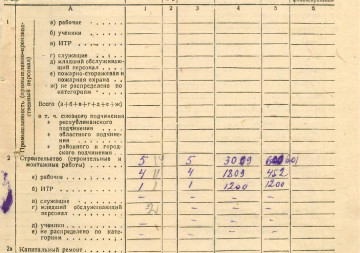 А 1 2 3 4 5 6
Промышленность (промышленно-производственный персонал)
а) рабочие
б) ученики
в) ИТР
г) служащие
д) младший обслуживаю-
щий персонал
е) пожарно-сторожевая и
пожарная охрана
ж) не распределено по
категориям
Всего (а+б+в+г+д+е+ж)
в т. ч. союзного подчинения
» республиканского
подчинения
» областного подчине-
ния
» районного и город-
ского подчинения
2 Строительство (строительные и
монтажные работы) 5 5 3009
а) рабочие 4 4 1809 452
б) ИТР 1 1 1200 1200
в) служащие – – – –
г) младший обслуживающий
персонал – – – –
д) ученики – – – –
е) не распределено по кате-
гориям – – – –
2а Капитальный ремонт